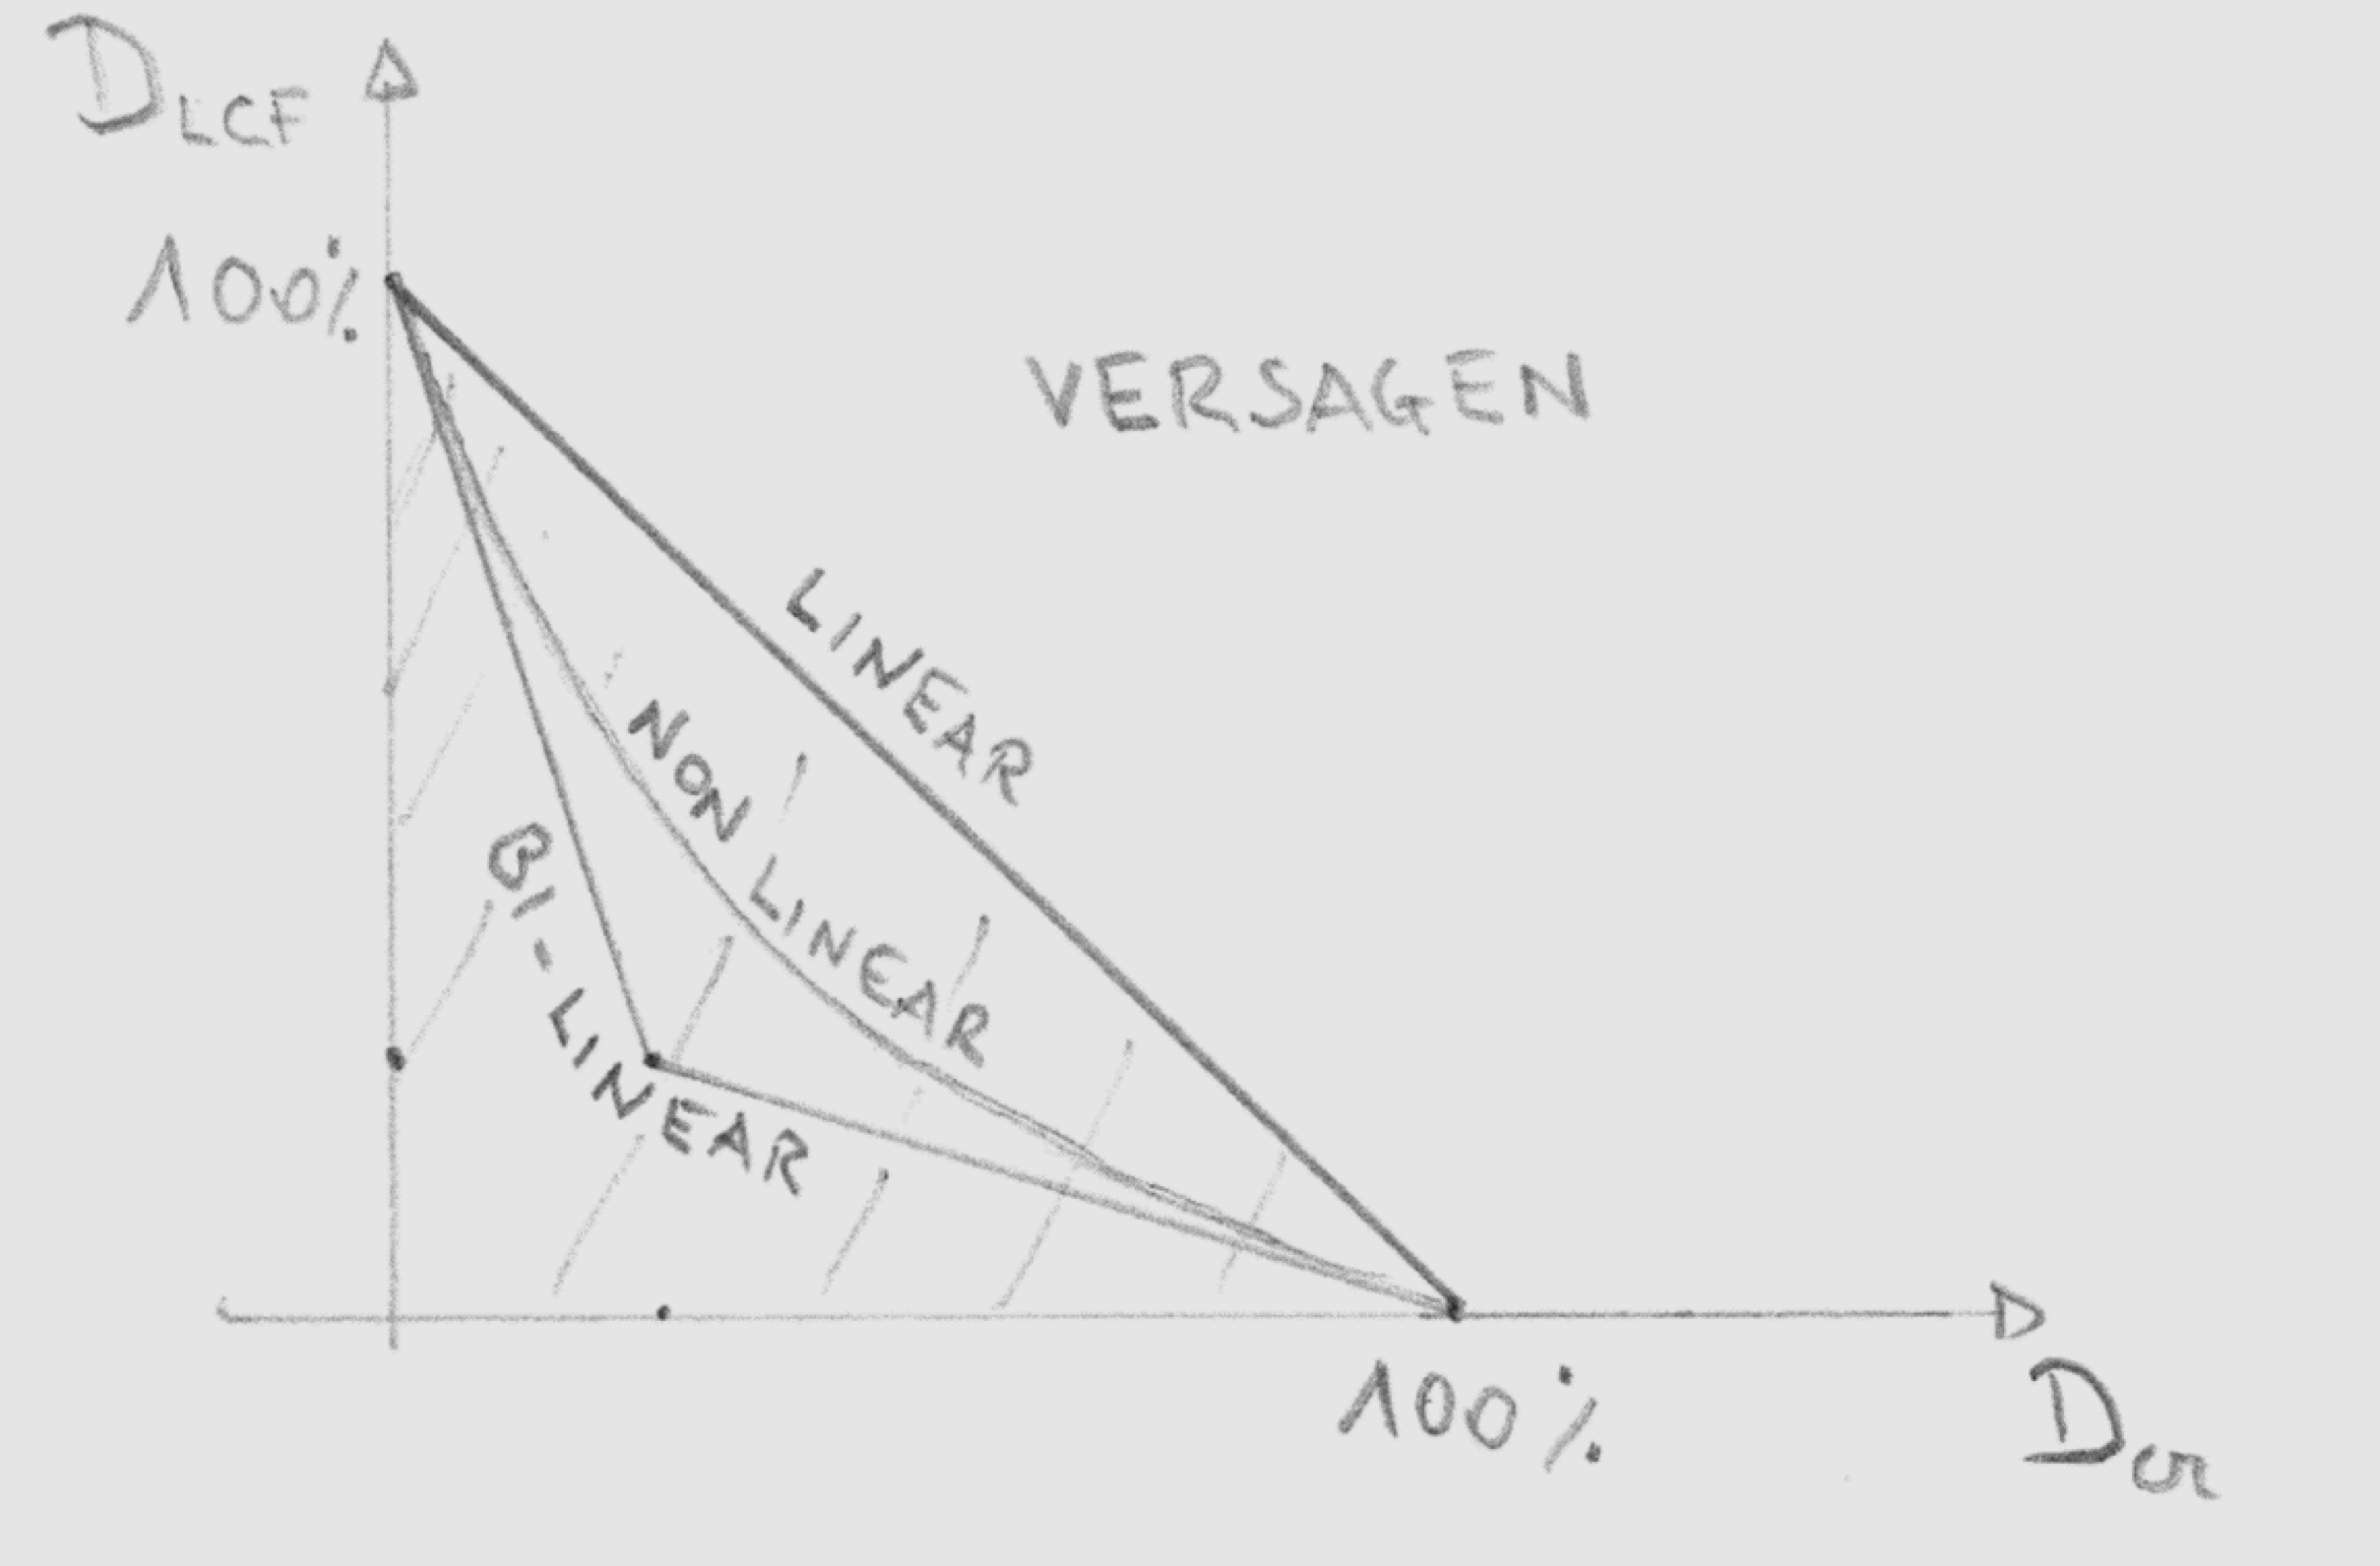 DLCF
100%
VERSAGEN
LINEAR
NON LINEAR
BI-LINEAR
100%
Dcr